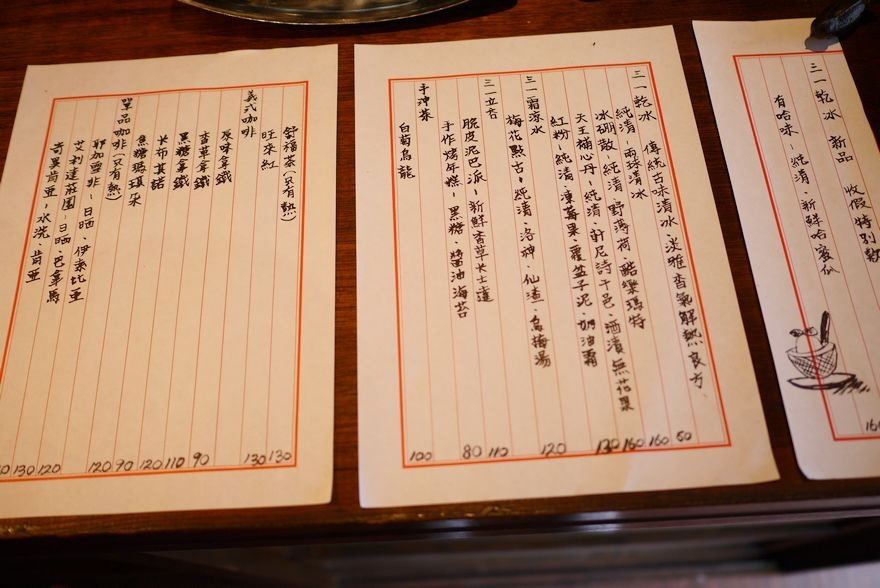 三一乾冰 新品 收假特別款
有哈味-純漬、新鮮哈蜜瓜 160
三一乾冰 傳統古味漬冰、淡雅香氣解熱良方
純漬-兩球漬冰 60
冰硼散-純漬、野薄荷、酷樂瑪特 160
天王補心丹-純漬、軒尼詩干邑、酒漬無花果 160
紅粉-純漬、凍莓果、覆盆子泥、奶油霜 130
三一霜涼水
梅花點舌-純漬、洛神、仙渣、烏梅湯 120
三一立音
脆皮泥巴派-新鮮香草卡士達 110
手作烤年糕-黑糖、醬油海苔 80
手沖茶
白菊烏龍 100
舒福茶(只有熱) 130
旺來紅 130
義式咖啡
原味拿鐵 90
香草拿鐵 110
黑糖拿鐵 120
卡布其諾 90
焦糖瑪琪朵 120
單品咖啡(只有熱)
耶加雪菲-日晒 伊索比亞 120
艾利達莊園-日晒、巴拿馬 130
奇異肯亞-水洗、肯亞